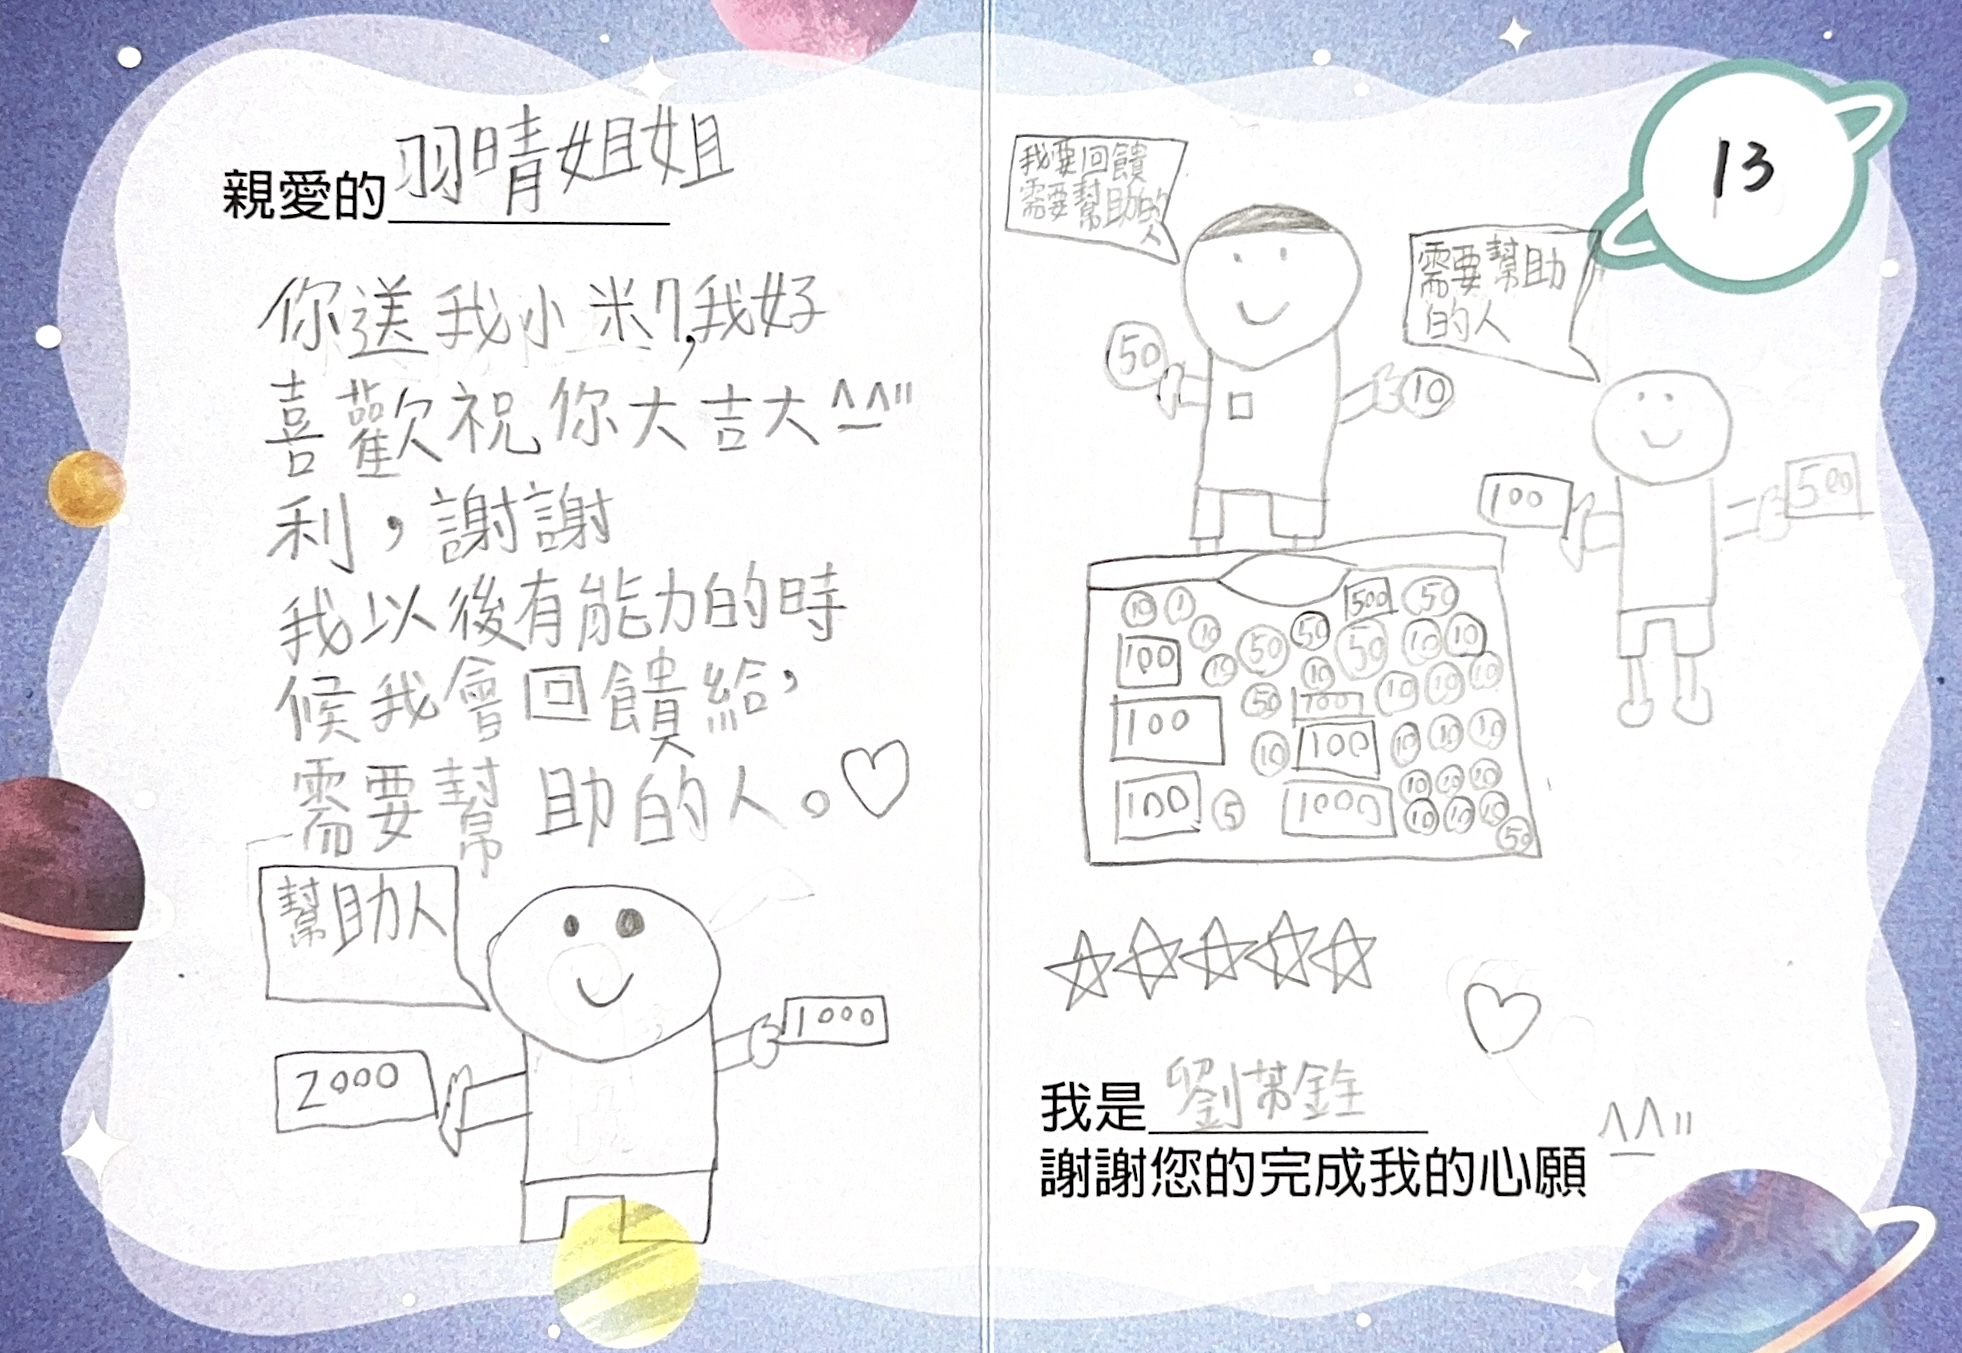 親愛的羽晴姐姐
你送我小米7,我好
喜歡祝你大吉大^_^"
利，謝謝
我以後有能力的時
候我會回饋給，
需要幫助的人。♡
幫助人
2000
1000
13
我要回饋
需要幫助的
人
需要幫助
的人
50
10
100
500
10
1
500
50
10
50
50
50
10
10
100
10
10
10
10
10
50
100
10
100
10
100
10
10
10
100
5
1000
10
10
10
10
10
10
50
我是劉芾銓
謝謝您的完成我的心願 ^_^"